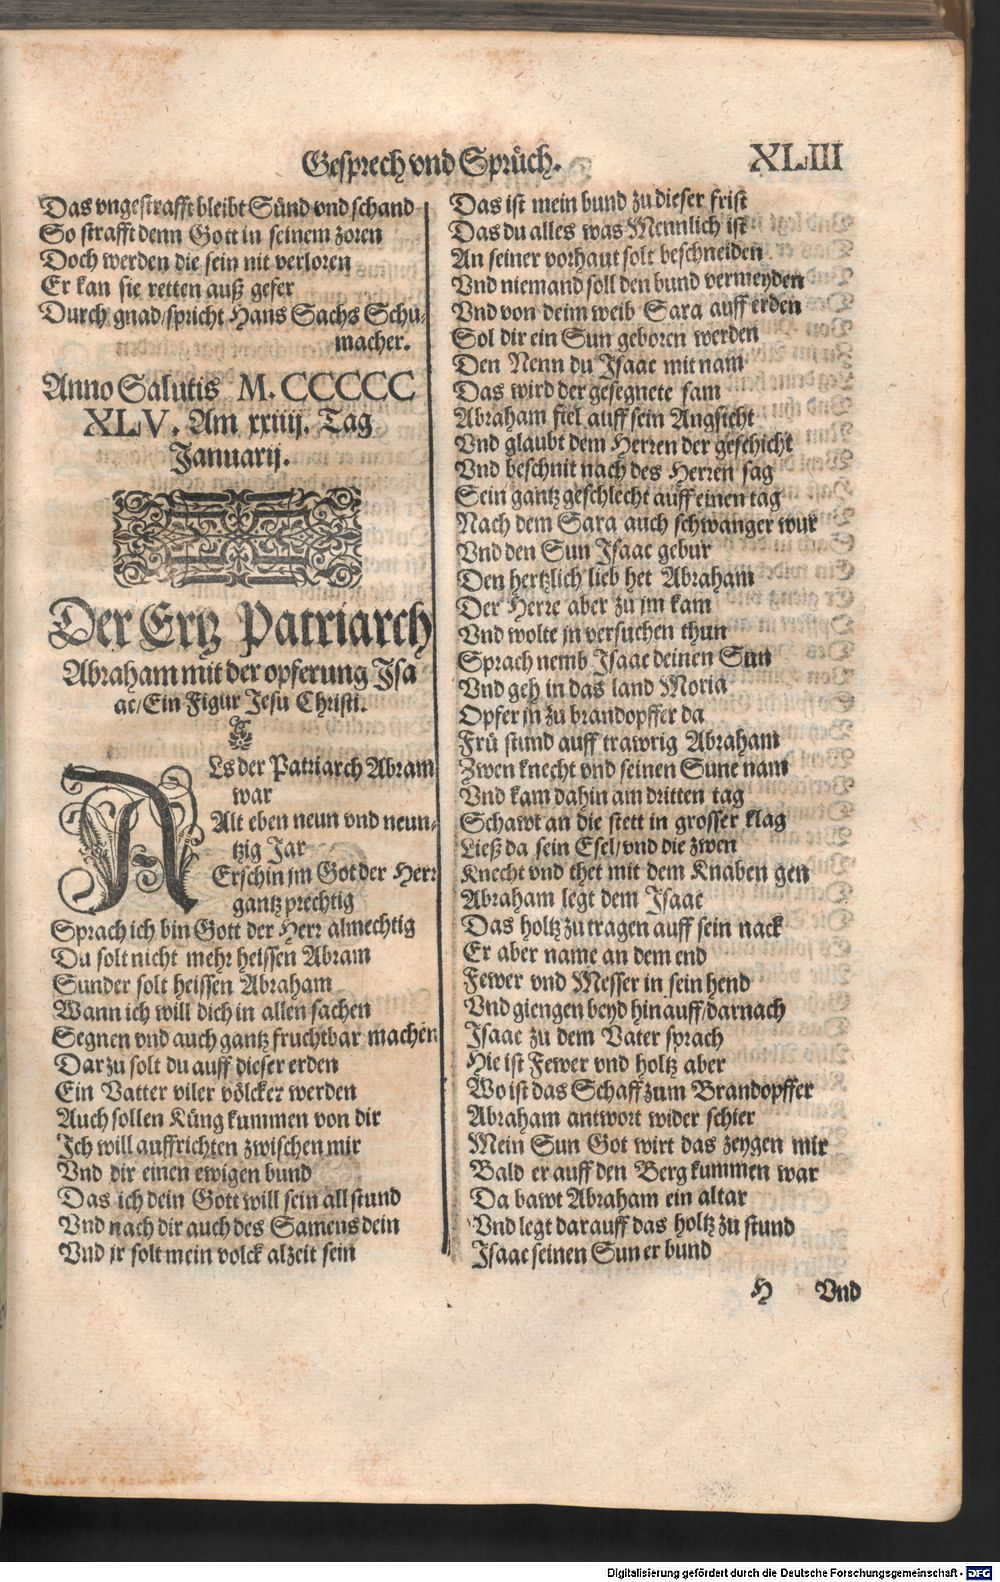 Gesprech vnd Sprüch. XLIII
Das vngestrafft bleibt Sünd vnd schand
So strafft denn Gott in seinem zoren
Doch werden die sein nit verloren
Er kan sie retten auß gefer
Durch gnad/spricht Hans Sachs Schu-
macher.
Anno Salutis M. CCCCC
XLV. Am xxiiij. Tag
Januarij.
Der Ertz Patriarch
Abraham mit der opferung Isa
ac/Ein Figur Jesu Christi.
ALs der Patriarch Abram
war
Alt eben neun vnd neun-
tzig Jar
Erschin jm Got der Herr
gantz prechtig
Sprach ich bin Gott der Herr almechtig
Du solt nicht mehr heissen Abram
Sunder solt heissen Abraham
Wann ich will dich in allen sachen
Segnen vnd auch gantz fruchtbar machen
Darzu solt du auff dieser erden
Ein Vatter viler völcker werden
Auch sollen Küng kummen von dir
Ich will auffrichten zwischen mir
Vnd dir einen ewigen bund
Das ich dein Gott will sein all stund
Vnd nach dir auch des Samens dein
Vnd jr solt mein volck alzeit sein
Das ist mein bund zu dieser frist
Das du alles was Mennlich ist
An seiner vorhaut solt beschneiden
Vnd niemand soll den bund vermeyden
Vnd von deim weib Sara auff erden
Sol dir ein Sun geboren werden
Den Nenn du Isaac mit nam
Das wird der gesegnete sam
Abraham fiel auff sein Angsicht
Vnd glaubt dem Herren der geschicht
Vnd beschnit nach des Herren sag
Sein gantz geschlecht auff einen tag
Nach dem Sara auch schwanger wur
Vnd den Sun Isaac gebur
Den hertzlich lieb het Abraham
Der Herre aber zu jm kam
Vnd wolte jn versuchen thun
Sprach nemb Isaac deinen Sun
Vnd geh in das land Moria
Opfer jn zu brandopffer da
Frü stund auff trawrig Abraham
Zwen knecht vnd seinen Sune nam
Vnd kam dahin am dritten tag
Schawt an die stett in grosser klag
Ließ da sein Esel/vnd die zwen
Knecht vnd thet mit dem Knaben gen
Abraham legt dem Isaac
Das holtz zu tragen auff sein nack
Er aber name an dem end
Fewer vnd Messer in sein hend
Vnd giengen beyd hinauff/darnach
Isaac zu dem Vater sprach
Hie ist Fewer vnd holtz aber
Wo ist das Schaff zum Brandopffer
Abraham antwort wider schier
Mein Sun Got wirt das zeygen mir
Bald er auff den Berg kummen war
Da bawt Abraham ein altar
Vnd legt darauff das holtz zu stund
Isaac seinen Sun er bund
H Vnd
Digitalisierung gefördert durch die Deutsche Forschungsgemeinschaft - DFG